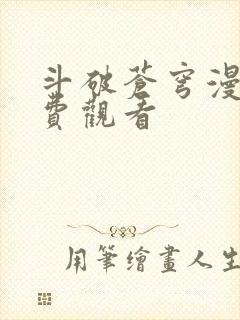 斗破蒼穹漫
費觀看
用筆繪畫人生